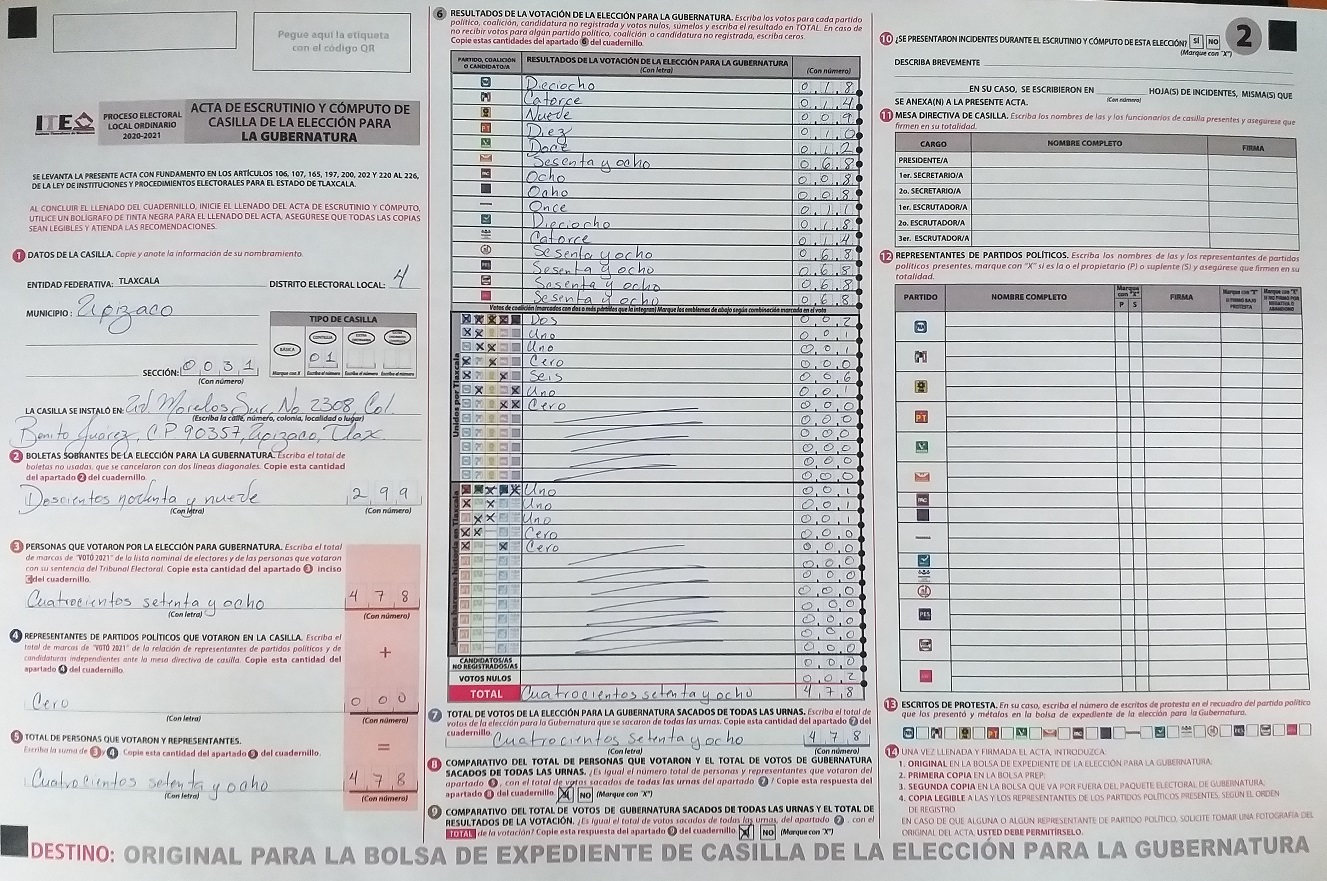 Pegue aquí la etiqueta
con el código QR
ITE
PROCESO ELECTORAL
LOCAL ORDINARIO
2020-2021
ACTA DE ESCRUTINIO Y CÓMPUTO DE
CASILLA DE LA ELECCIÓN PARA
LA GUBERNATURA
SE LEVANTA LA PRESENTE ACTA CON FUNDAMENTO EN LOS ARTÍCULOS 106, 107, 165, 197, 200, 202 Y 220 AL 226,
DE LA LEY DE INSTITUCIONES Y PROCEDIMIENTOS ELECTORALES PARA EL ESTADO DE TLAXCALA.
AL CONCLUIR EL LLENADO DEL CUADERNILLO, INICIE EL LLENADO DEL ACTA DE ESCRUTINIO Y CÓMPUTO,
UTILICE UN BOLÍGRAFO DE TINTA NEGRA PARA EL LLENADO DEL ACTA, ASEGÚRESE QUE TODAS LAS COPIAS
SEAN LEGIBLES Y ATIENDA LAS RECOMENDACIONES.
1 DATOS DE LA CASILLA. Copie y anote la información de su nombramiento.
ENTIDAD FEDERATIVA: TLAXCALA DISTRITO ELECTORAL LOCAL: 4
MUNICIPIO: Apizaco
TIPO DE CASILLA
BÁSICA
01
SECCIÓN: 0031
(Con número)
LA CASILLA SE INSTALÓ EN: Av Morelos Sur No 2308, Col.
(Escriba la calle, número, colonia, localidad o lugar)
Benito Juárez, C.P 90357, Apizaco, Tlax.
2 BOLETAS SOBRANTES DE LA ELECCIÓN PARA LA GUBERNATURA. Escriba el total de
boletas no usadas, que se cancelaron con dos líneas diagonales. Copie esta cantidad
del apartado 2 del cuadernillo.
Doscientos noventa y nueve 299
(Con letra) (Con número)
3 PERSONAS QUE VOTARON POR LA ELECCIÓN PARA GUBERNATURA. Escriba el total
de marcas de "VOTÓ 2021" de la lista nominal de electores y de las personas que votaron
con su sentencia del Tribunal Electoral. Copie esta cantidad del apartado 3 inciso
del cuadernillo.
Cuatrocientos setenta y ocho 478
(Con letra) (Con número)
4 REPRESENTANTES DE PARTIDOS POLÍTICOS QUE VOTARON EN LA CASILLA. Escriba el
total de marcas de "VOTÓ 2021" de la relación de representantes de partidos políticos y de
candidaturas independientes ante la mesa directiva de casilla. Copie esta cantidad del
apartado 4 del cuadernillo.
+
Cero 000
(Con letra) (Con número)
5 TOTAL DE PERSONAS QUE VOTARON Y REPRESENTANTES.
Escriba la suma de 3 y 4. Copie esta cantidad del apartado 5 del cuadernillo.
=
Cuatrocientos setenta y ocho 478
(Con letra) (Con número)
6 RESULTADOS DE LA VOTACIÓN DE LA ELECCIÓN PARA LA GUBERNATURA. Escriba los votos para cada partido
político, coalición, candidatura no registrada y votos nulos, súmelos y escriba el resultado en TOTAL. En caso de
no recibir votos para algún partido político, coalición o candidatura no registrada, escriba ceros.
Copie estas cantidades del apartado 6 del cuadernillo.
PARTIDO, COALICIÓN
O CANDIDATO/A
RESULTADOS DE LA VOTACIÓN DE LA ELECCIÓN PARA LA GUBERNATURA
(Con letra) (Con número)
Dieciocho 018
Catorce 014
Nueve 009
PT Diez 010
Doce 012
Sesenta y ocho 068
PAC Ocho 008
Ocho 008
Once 011
Dieciocho 018
Catorce 014
Sesenta y ocho 068
PES Sesenta y ocho 068
Sesenta y ocho 068
Sesenta y ocho 068
Votos de coalición (marcados con dos o más partidos que la integran) Marque los emblemas de abajo según combinación marcada en el voto
Unidos por Tlaxcala
Dos 002
Uno 001
Uno 001
Cero 000
Seis 006
Uno 001
Cero 000
000
000
000
000
000
Juntos haremos historia en Tlaxcala
Uno 001
Uno 001
Uno 001
Cero 000
Cero 000
000
000
000
000
000
000
000
CANDIDATOS/AS
NO REGISTRADOS/AS 000
VOTOS NULOS 002
TOTAL Cuatrocientos setenta y ocho 478
7 TOTAL DE VOTOS DE LA ELECCIÓN PARA LA GUBERNATURA SACADOS DE TODAS LAS URNAS. Escriba el total de
votos de la elección para la Gubernatura que se sacaron de todas las urnas. Copie esta cantidad del apartado 7 del
cuadernillo. Cuatrocientos setenta y ocho 478
(Con letra) (Con número)
8 COMPARATIVO DEL TOTAL DE PERSONAS QUE VOTARON Y EL TOTAL DE VOTOS DE GUBERNATURA
SACADOS DE TODAS LAS URNAS. ¿Es igual el número total de personas y representantes que votaron del
apartado 5, con el total de votos sacados de todas las urnas del apartado 7? Copie esta respuesta del
apartado 8 del cuadernillo. NO (Marque con "X")
9 COMPARATIVO DEL TOTAL DE VOTOS DE GUBERNATURA SACADOS DE TODAS LAS URNAS Y EL TOTAL DE
RESULTADOS DE LA VOTACIÓN. ¿Es igual el total de votos sacados de todas las urnas, del apartado 7, con el
TOTAL de la votación? Copie esta respuesta del apartado 9 del cuadernillo. NO (Marque con "X")
2
10 ¿SE PRESENTARON INCIDENTES DURANTE EL ESCRUTINIO Y CÓMPUTO DE ESTA ELECCIÓN? SÍ NO
(Marque con "X")
DESCRIBA BREVEMENTE
EN SU CASO, SE ESCRIBIERON EN HOJA(S) DE INCIDENTES, MISMA(S) QUE
(Con número)
SE ANEXA(N) A LA PRESENTE ACTA.
11 MESA DIRECTIVA DE CASILLA. Escriba los nombres de las y los funcionarios de casilla presentes y asegúrese que
firmen en su totalidad.
CARGO NOMBRE COMPLETO FIRMA
PRESIDENTE/A
1er. SECRETARIO/A
2o. SECRETARIO/A
1er. ESCRUTADOR/A
2o. ESCRUTADOR/A
3er. ESCRUTADOR/A
12 REPRESENTANTES DE PARTIDOS POLÍTICOS. Escriba los nombres de las y los representantes de partidos
políticos presentes, marque con "X" si es la o el propietario (P) o suplente (S) y asegúrese que firmen en su
totalidad.
PARTIDO NOMBRE COMPLETO Marque con "X" P S FIRMA
PT
PAC
PES
13 ESCRITOS DE PROTESTA. En su caso, escriba el número de escritos de protesta en el recuadro del partido político
que los presentó y métalos en la bolsa de expediente de la elección para la Gubernatura.
14 UNA VEZ LLENADA Y FIRMADA EL ACTA, INTRODUZCA:
1. ORIGINAL EN LA BOLSA DE EXPEDIENTE DE LA ELECCIÓN PARA LA GUBERNATURA;
2. PRIMERA COPIA EN LA BOLSA PREP;
3. SEGUNDA COPIA EN LA BOLSA QUE VA POR FUERA DEL PAQUETE ELECTORAL DE GUBERNATURA;
4. COPIA LEGIBLE A LAS Y LOS REPRESENTANTES DE LOS PARTIDOS POLÍTICOS PRESENTES, SEGÚN EL ORDEN
DE REGISTRO.
EN CASO DE QUE ALGUNA O ALGÚN REPRESENTANTE DE PARTIDO POLÍTICO, SOLICITE TOMAR UNA FOTOGRAFÍA DEL
ORIGINAL DEL ACTA, USTED DEBE PERMITÍRSELO.
DESTINO: ORIGINAL PARA LA BOLSA DE EXPEDIENTE DE CASILLA DE LA ELECCIÓN PARA LA GUBERNATURA